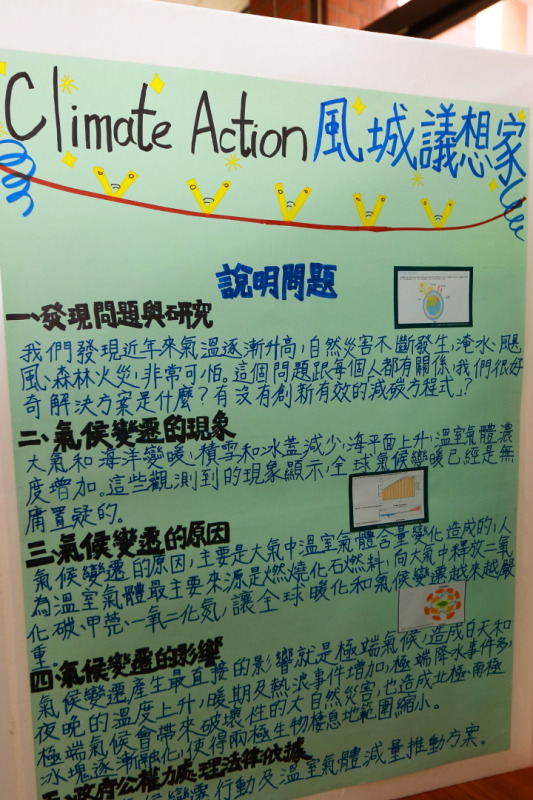 Climate Action 風城議想家
說明問題
一、發現問題與研究
我們發現近年來氣溫逐漸升高,自然災害不斷發生,淹水、颶
風、森林火災,非常可怕。這個問題跟每個人都有關係,我們很好
奇解決方案是什麼?有沒有創新有效的減碳方程式」?
二、氣候變遷的現象
大氣和海洋變暖,積雪和冰蓋減少,海平面上升,溫室氣體濃
度增加。這些觀測到的現象顯示,全球氣候變暖已經是無
庸置疑的。
三、氣候變遷的原因
氣候變遷的原因,主要是大氣中溫室氣體含量變化造成的,人
為溫室氣體最主要來源是燃燒化石燃料,向大氣中釋放二氧
化碳、甲莞、一氧二化氮,讓全球暖化和氣候變遷越來越嚴
重。
四、氣候變遷的影響
氣候變遷產生最直接的影響就是極端氣候,造成白天和
夜晚的溫度上升,暖期及熱浪事件增加,極端降水事件多,
極端氣候會帶來破壞性的大自然災害,也造成北極、南極
冰塊逐漸融化,使得兩極生物棲息地範圍縮小。
五、政府公權力處理法律依據
氣候變遷行動及溫室氣體減量推動方案。